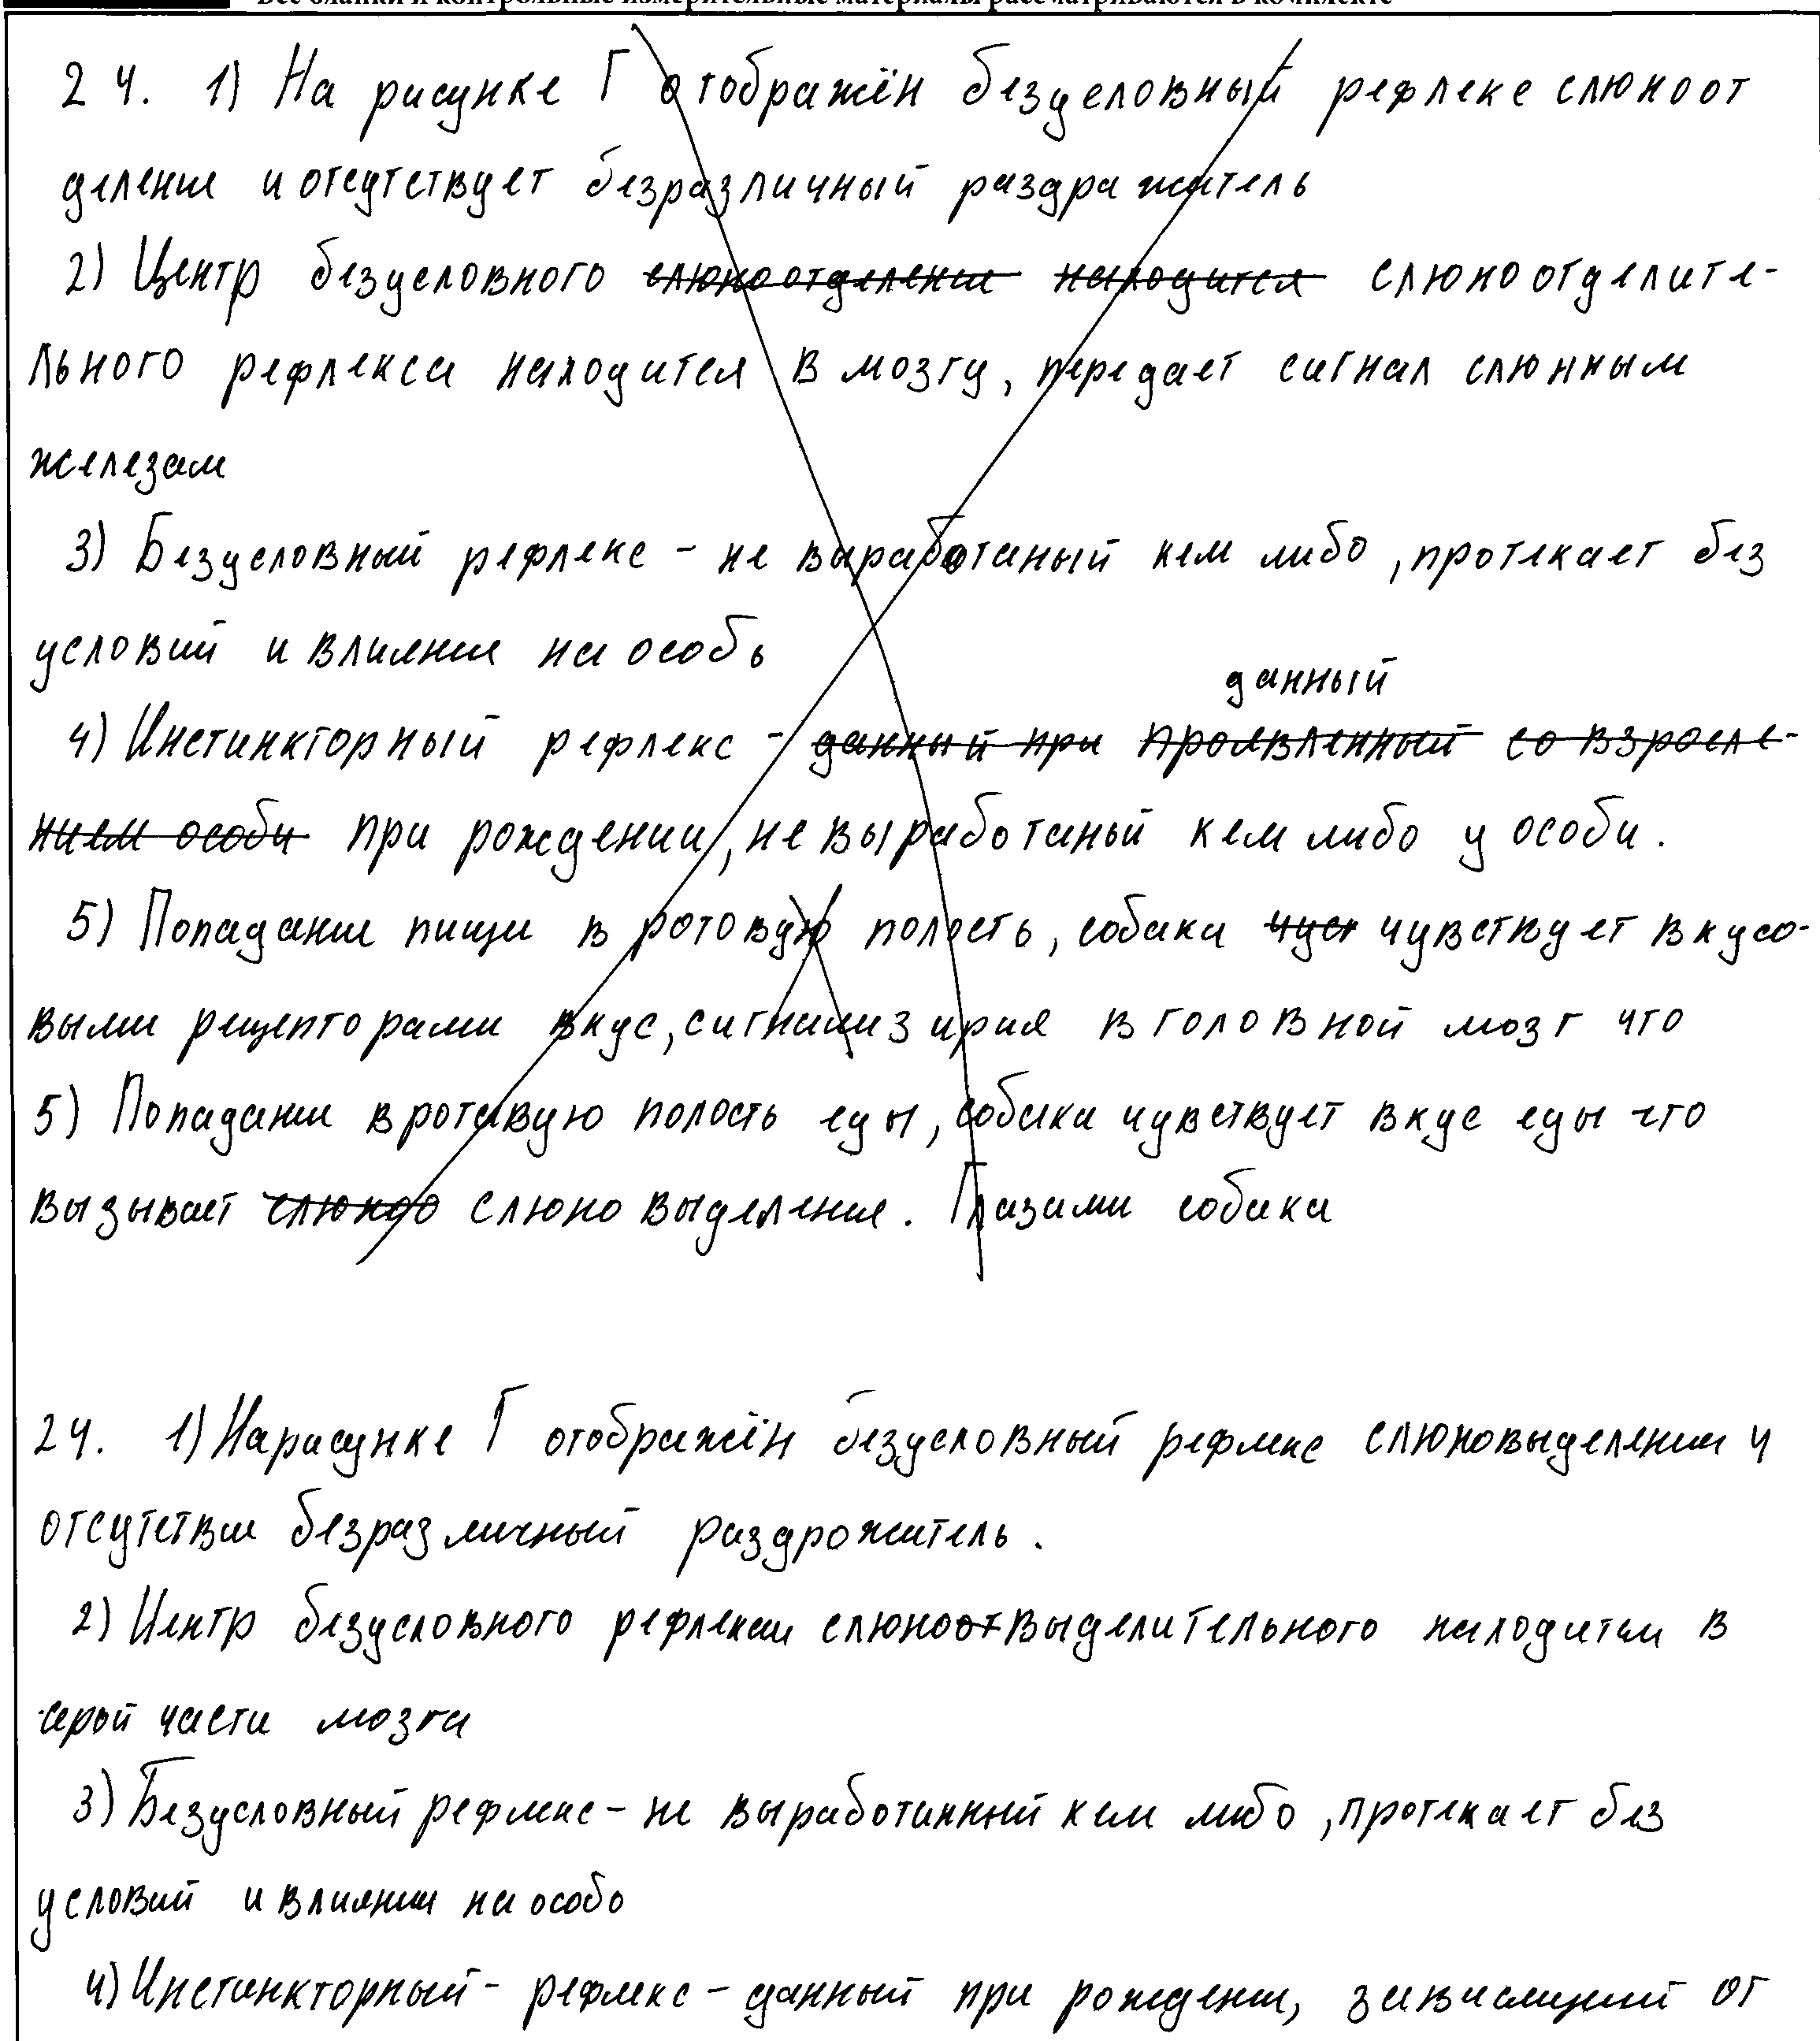 Все бланки и контрольные измерительные материалы рассматриваются в комплекте
24. 1) На рисунке Г отображён безусловный рефлекс слюноот
деление и отсутствует безразличный раздражитель
2) Центр безусловного слюноотделение находится слюноотделите-
льного рефлекса находится в мозгу, передает сигнал слюнным
железам
3) Безусловный рефлекс - не выработаный кем либо, протекает без
условий и влияние на особь
данный
4) Инстинкторный рефлекс - данный при проявленный со взросле-
нием особи при рождении, не выработаный кем либо у особи.
5) Попадание пищи в ротовую полость, собака чуст чувствует вкусо-
выми рецепторами вкус, сигнализируя в головной мозг что
5) Попадание в ротовую полость еды, собака чувствует вкус еды что
вызывает слюноо слюно выделение. Глазами собака
24. 1) На рисунке Г отображён безусловный рефлекс слюновыделении и
отсутствии безразличный раздрожитель.
2) Центр безусловного рефлекса слюноотвыделительного находится в
серой части мозга
3) Безусловный рефлекс - не выработанный кем либо, протекает без
условий и влиянии на особо
4) Инстинкторный - рефлекс - данный при рождение, зависящий от